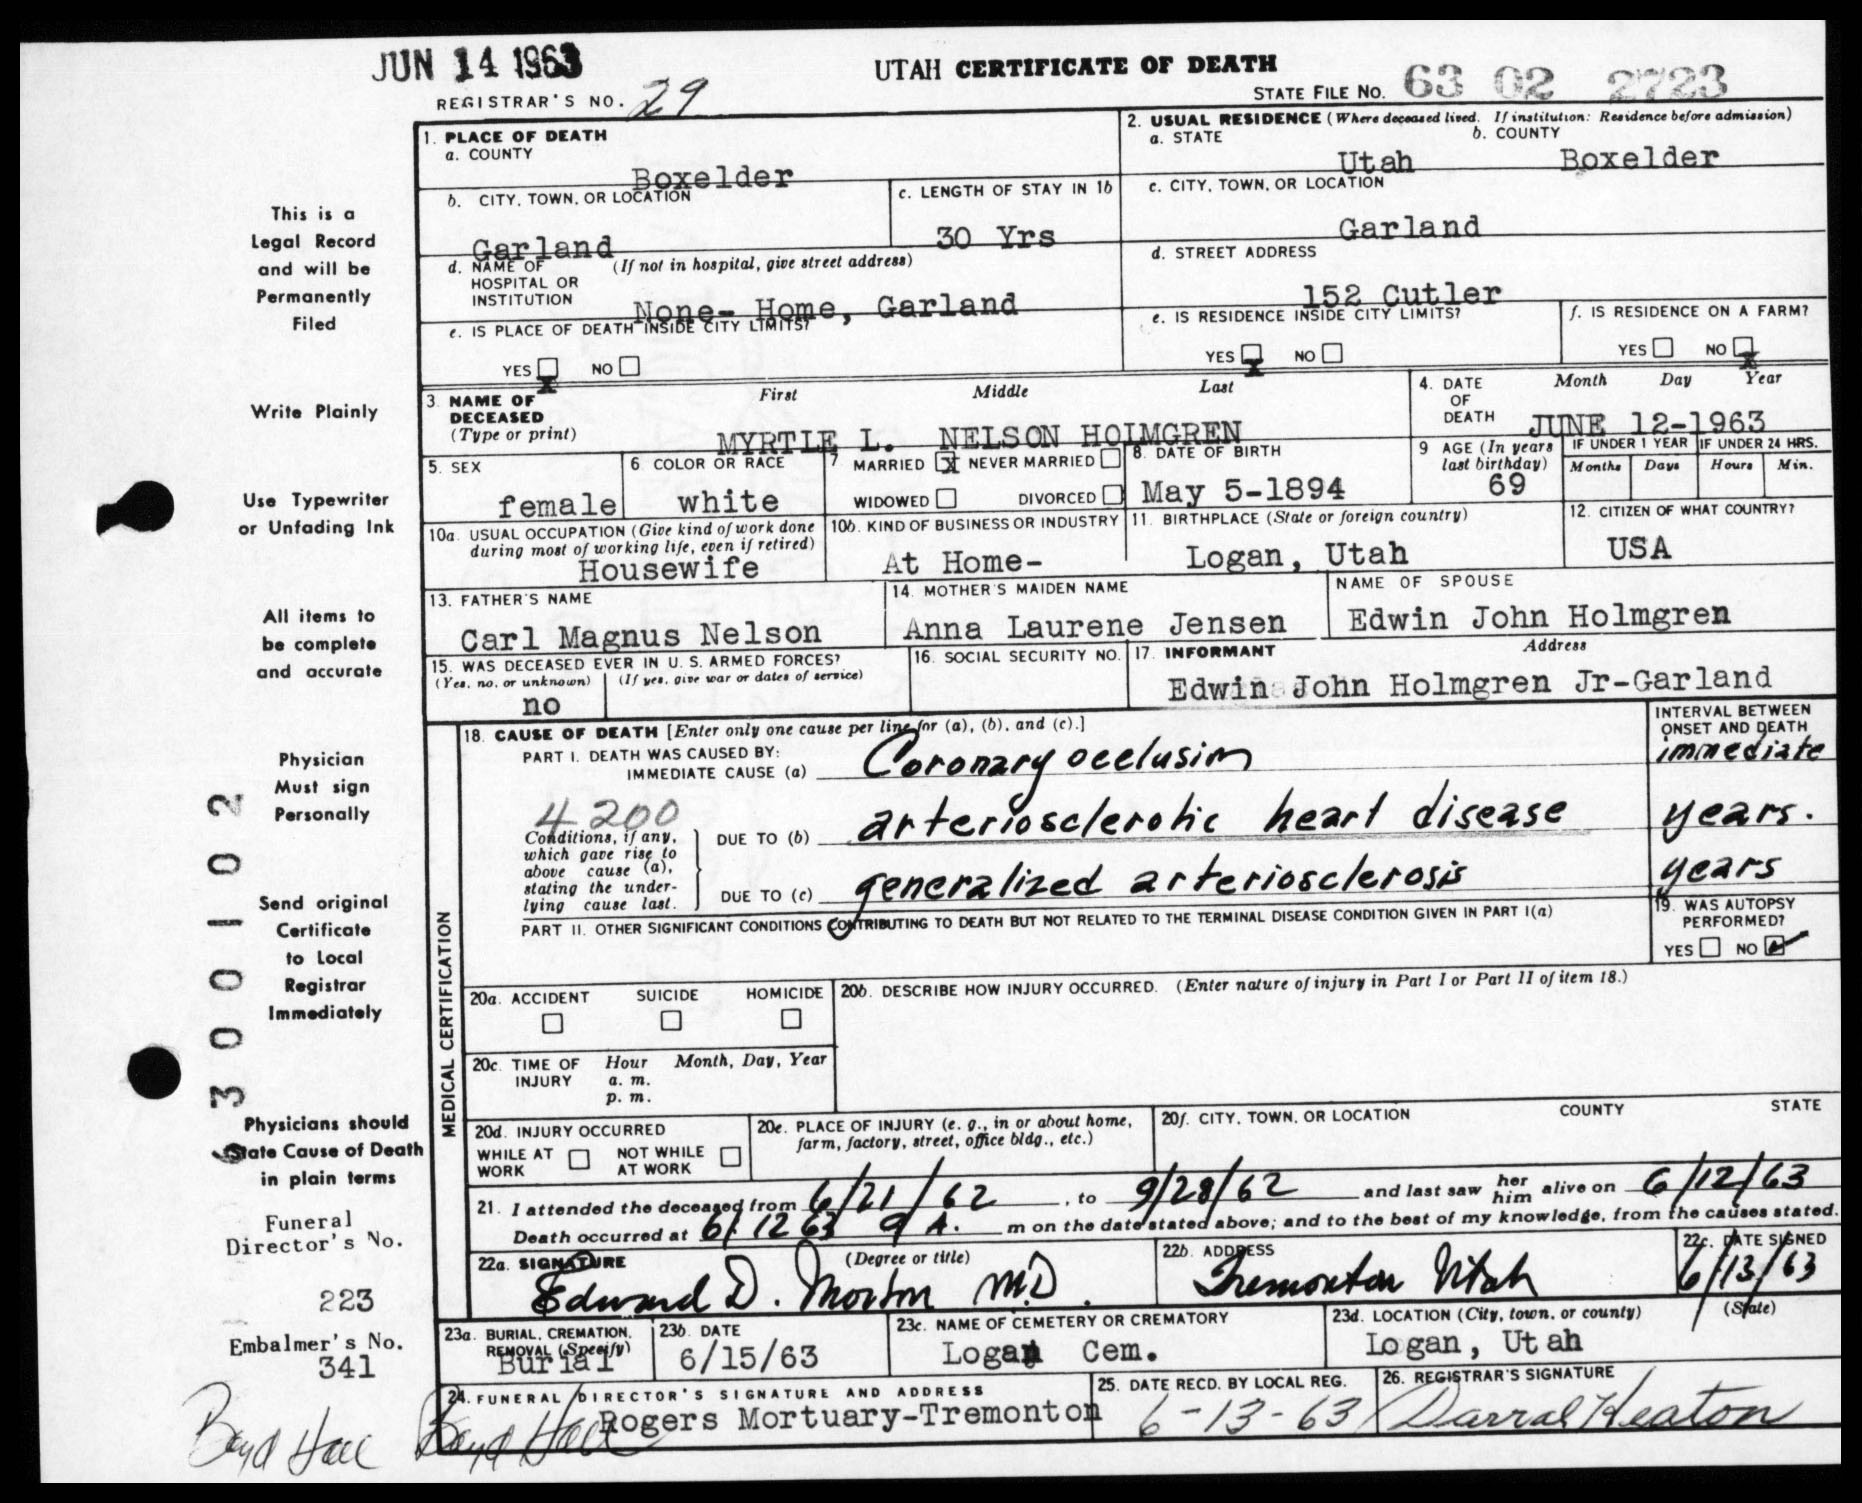 JUN 14 1963
UTAH CERTIFICATE OF DEATH
REGISTRAR'S NO. 29
STATE FILE NO. 63 02 2723
1. PLACE OF DEATH
a. COUNTY
Boxelder
2. USUAL RESIDENCE (Where deceased lived. If institution: Residence before admission)
a. STATE b. COUNTY
Utah Boxelder
b. CITY, TOWN, OR LOCATION
Garland
c. LENGTH OF STAY IN 1b
30 Yrs
c. CITY, TOWN, OR LOCATION
Garland
d. NAME OF HOSPITAL OR INSTITUTION (If not in hospital, give street address)
None- Home, Garland
d. STREET ADDRESS
152 Cutler
e. IS PLACE OF DEATH INSIDE CITY LIMITS?
YES X NO
e. IS RESIDENCE INSIDE CITY LIMITS?
YES X NO
f. IS RESIDENCE ON A FARM?
YES NO X
3. NAME OF DECEASED (Type or print)
First Middle Last
MYRTLE L. NELSON HOLMGREN
4. DATE OF DEATH Month Day Year
JUNE 12-1963
5. SEX
female
6. COLOR OR RACE
white
7. MARRIED X NEVER MARRIED
WIDOWED DIVORCED
8. DATE OF BIRTH
May 5-1894
9 AGE (In years last birthday)
69
IF UNDER 1 YEAR
Months Days
IF UNDER 24 HRS.
Hours Min.
10a. USUAL OCCUPATION (Give kind of work done during most of working life, even if retired)
Housewife
10b. KIND OF BUSINESS OR INDUSTRY
At Home-
11. BIRTHPLACE (State or foreign country)
Logan, Utah
12. CITIZEN OF WHAT COUNTRY?
USA
13. FATHER'S NAME
Carl Magnus Nelson
14. MOTHER'S MAIDEN NAME
Anna Laurene Jensen
NAME OF SPOUSE
Edwin John Holmgren
15. WAS DECEASED EVER IN U. S. ARMED FORCES?
(Yes, no, or unknown) (If yes, give war or dates of service)
no
16. SOCIAL SECURITY NO.
17. INFORMANT Address
Edwin John Holmgren Jr-Garland
MEDICAL CERTIFICATION
18. CAUSE OF DEATH [Enter only one cause per line for (a), (b), and (c).]
INTERVAL BETWEEN ONSET AND DEATH
PART I. DEATH WAS CAUSED BY:
IMMEDIATE CAUSE (a) Coronary occlusion immediate
4200
Conditions, if any, which gave rise to above cause (a), stating the underlying cause last.
DUE TO (b) arteriosclerotic heart disease years.
DUE TO (c) generalized arteriosclerosis years
PART II. OTHER SIGNIFICANT CONDITIONS CONTRIBUTING TO DEATH BUT NOT RELATED TO THE TERMINAL DISEASE CONDITION GIVEN IN PART I(a)
19. WAS AUTOPSY PERFORMED?
YES NO ✓
20a. ACCIDENT SUICIDE HOMICIDE
20b. DESCRIBE HOW INJURY OCCURRED. (Enter nature of injury in Part I or Part II of item 18.)
20c. TIME OF INJURY Hour Month, Day, Year
a. m.
p. m.
20d. INJURY OCCURRED
WHILE AT WORK NOT WHILE AT WORK
20e. PLACE OF INJURY (e. g., in or about home, farm, factory, street, office bldg., etc.)
20f. CITY, TOWN, OR LOCATION COUNTY STATE
21. I attended the deceased from 6/21/62, to 9/28/62 and last saw her him alive on 6/12/63
Death occurred at 6/ 12 63 9 A. m on the date stated above; and to the best of my knowledge, from the causes stated.
22a. SIGNATURE (Degree or title)
Edward D. Morton M.D.
22b. ADDRESS
Tremonton Utah
22c. DATE SIGNED
6/13/63
23a. BURIAL, CREMATION, REMOVAL (Specify)
Burial
23b. DATE
6/15/63
23c. NAME OF CEMETERY OR CREMATORY
Logan Cem.
23d. LOCATION (City, town, or county) (State)
Logan, Utah
24. FUNERAL DIRECTOR'S SIGNATURE AND ADDRESS
Boyd Hall Rogers Mortuary-Tremonton
25. DATE RECD. BY LOCAL REG.
6-13-63
26. REGISTRAR'S SIGNATURE
Darral Heaton
This is a
Legal Record
and will be
Permanently
Filed
Write Plainly
Use Typewriter
or Unfading Ink
All items to
be complete
and accurate
Physician
Must sign
Personally
Send original
Certificate
to Local
Registrar
Immediately
Physicians should
State Cause of Death
in plain terms
Funeral
Director's No.
223
Embalmer's No.
341
Boyd Hall
300102